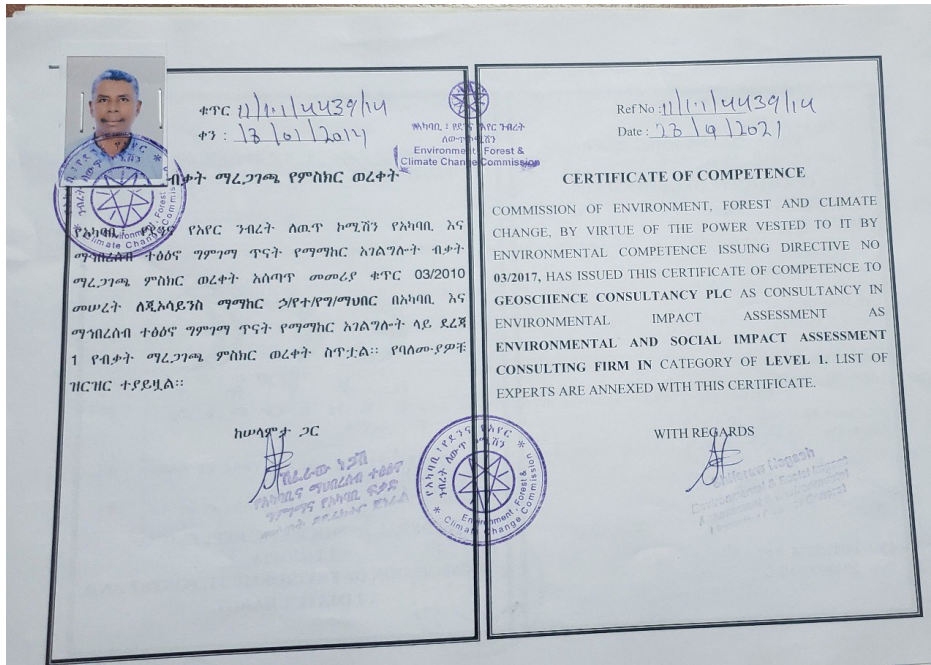 ቁጥር 11/1.1/4439/14
ቀን : 13/01/2014
የአካባቢ፣ የደንና የአየር ንብረት
ለውጥ ኮሚሽን
Environment, Forest &
Climate Change Commission
ብቃት ማረጋገጫ የምስክር ወረቀት
የአካባቢ፣ የደንና የአየር ንብረት ለዉጥ ኮሚሽን የአካባቢ እና
ማኅበረሰብ ተፅዕኖ ግምገማ ጥናት የማማከር አገልግሎት ብቃት
ማረጋገጫ ምስክር ወረቀት አሰጣጥ መመሪያ ቁጥር 03/2010
መሠረት ለጂኦሳይንስ ማማከር ኃ/የተ/የግ/ማህበር በአካባቢ እና
ማኅበረሰብ ተፅዕኖ ግምገማ ጥናት የማማከር አገልግሎት ላይ ደረጃ
1 የብቃት ማረጋገጫ ምስክር ወረቀት ሰጥቷል። የባለሙያዎቹ
ዝርዝር ተያይዟል።
ከሠላምታ ጋር
Ref No :11/1.1/4439/14
Date : 23/9/2021
CERTIFICATE OF COMPETENCE
COMMISSION OF ENVIRONMENT, FOREST AND CLIMATE
CHANGE, BY VIRTUE OF THE POWER VESTED TO IT BY
ENVIRONMENTAL COMPETENCE ISSUING DIRECTIVE NO
03/2017, HAS ISSUED THIS CERTIFICATE OF COMPETENCE TO
GEOSCHENCE CONSULTANCY PLC AS CONSULTANCY IN
ENVIRONMENTAL IMPACT ASSESSMENT AS
ENVIRONMENTAL AND SOCIAL IMPACT ASSESSMENT
CONSULTING FIRM IN CATEGORY OF LEVEL 1. LIST OF
EXPERTS ARE ANNEXED WITH THIS CERTIFICATE.
WITH REGARDS
የአካባቢ፣ የደንና የአየር
ንብረት ለውጥ ኮሚሽን
Environment, Forest &
Climate Change Commission
Shiferaw Negash
Environmental & Social Impact